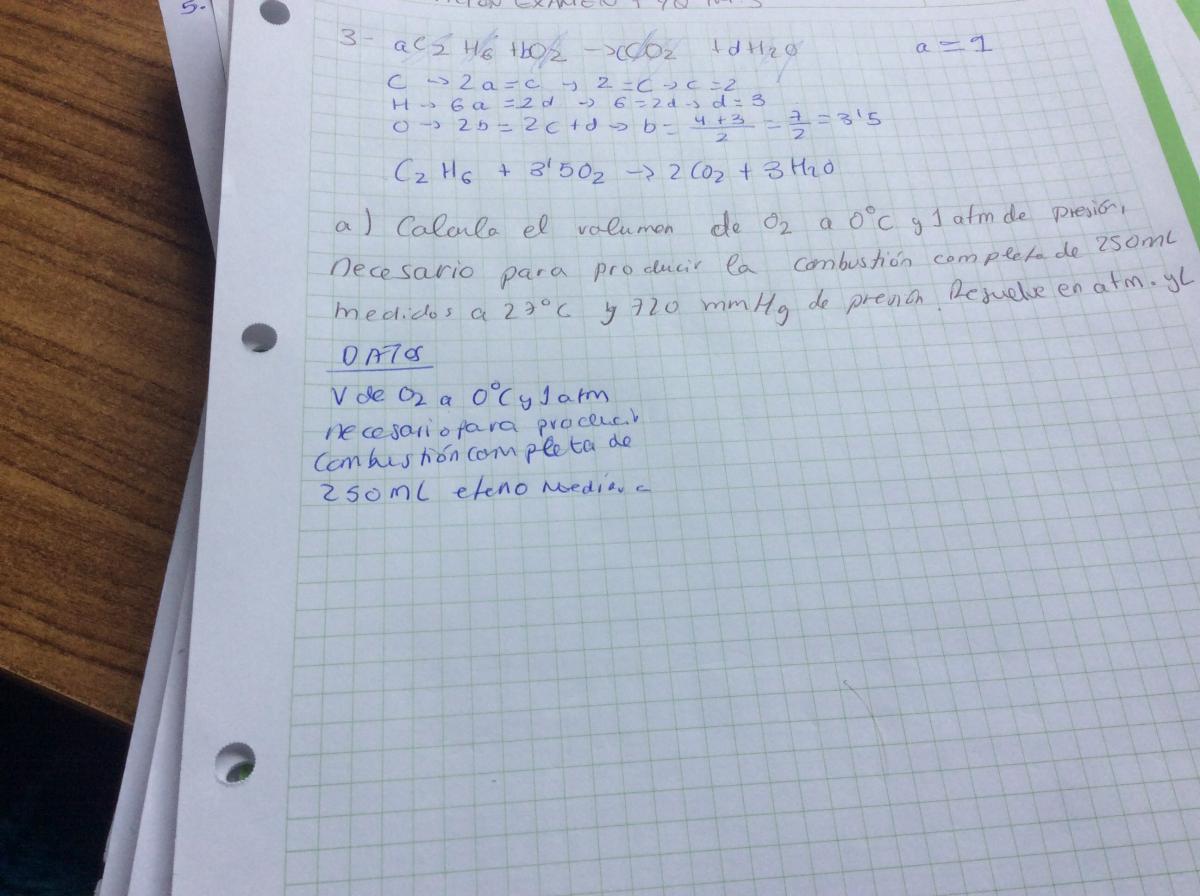 5.
EXAMEN
3- aC2 H6 + bO2 -> cCO2 + dH2O a = 1
C -> 2a = c -> 2 = c -> c = 2
H -> 6a = 2d -> 6 = 2d -> d = 3
O -> 2b = 2c + d -> b = 4+3/2 = 7/2 = 3'5
C2 H6 + 3'5O2 -> 2CO2 + 3H2O
a) Calcula el volumen de O2 a 0°C y 1 atm de presión,
necesario para producir la combustión completa de 250mL
medidos a 27°C y 720 mmHg de presión. Resuelve en atm. y L
DATOS
V de O2 a 0°C y 1 atm
necesario para producir
combustión completa de
250mL eteno